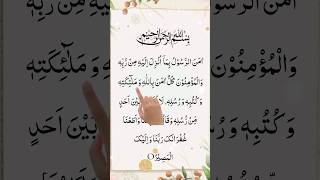 بِسْمِ اللهِ الرَّحْمٰنِ الرَّحِيْمِ
اٰمَنَ الرَّسُوْلُ بِمَآ اُنْزِلَ اِلَيْهِ مِنْ رَّبِّهٖ
وَالْمُؤْمِنُوْنَ كُلٌّ اٰمَنَ بِاللهِ وَ مَلٰٓئِكَتِهٖ
وَ كُتُبِهٖ وَ رُسُلِهٖ لَا بَيْنَ اَحَدٍ
مِّنْ رُّسُلِهٖ وَاَطَعْنَا
غُفْرَانَكَ رَبَّنَا وَاِلَيْكَ
الْمَصِيْرُ